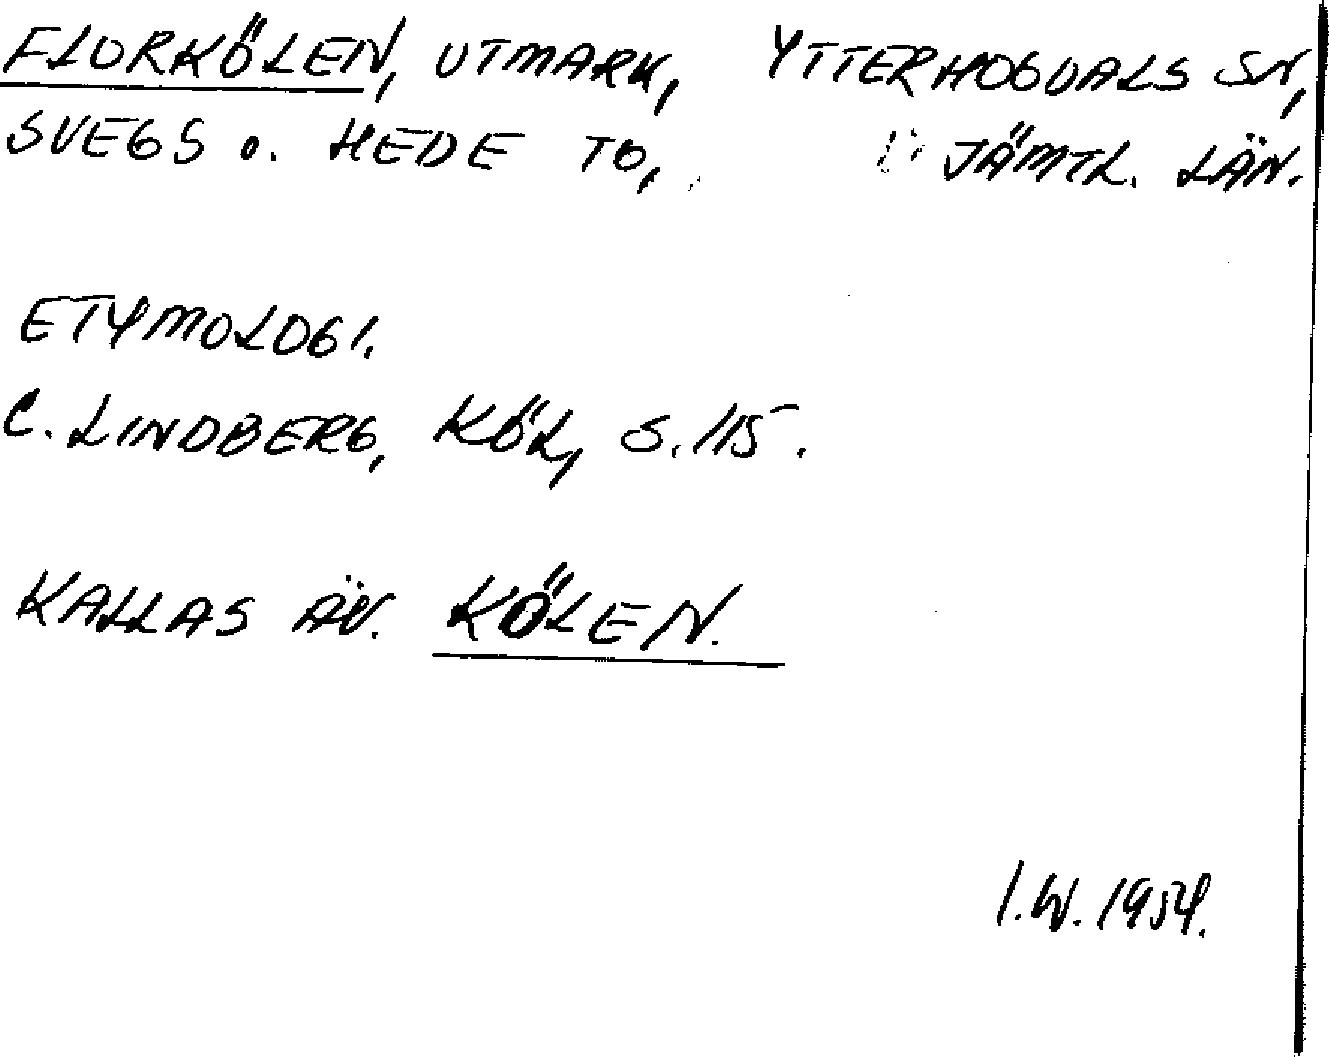 FLORKÖLEN, UTMARK, YTTERHOGDALS SN,
SVEGS o. HEDE TO, JÄMTL. LÄN.
ETYMOLOGI.
C. LINDBERG, KÖL, S. 115.
KALLAS ÄV. KÖLEN.
I.W. 1954.